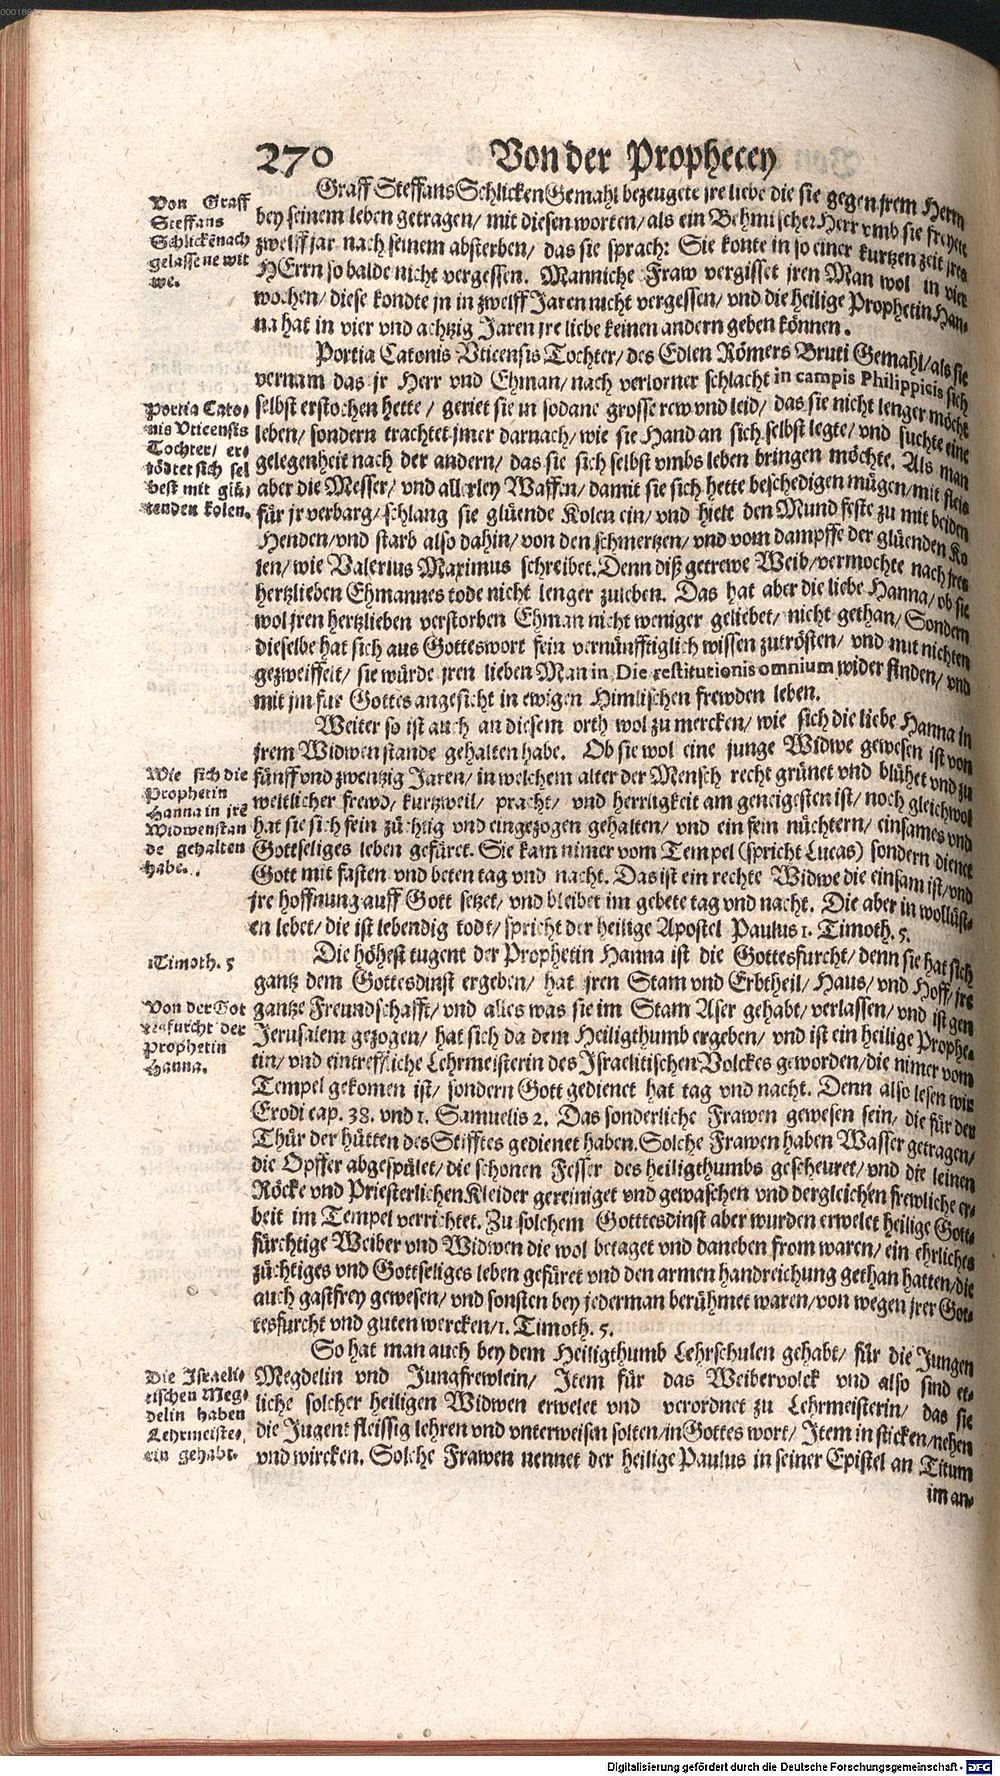 00018852
270 Von der Prophecey
Graff Steffans Schlicken Gemahl bezeugete jre liebe die sie gegen jrem Herrn
bey seinem leben getragen/ mit diesen worten/ als ein Behmischer Herr vmb sie freyete
zwelff jar nach seinem absterben/ das sie sprach: Sie konte in so einer kurtzen zeit jres
HErrn so balde nicht vergessen. Manniche Fraw vergisset jren Man wol in vier
wochen/ diese kondte jn in zwelff Jaren nicht vergessen/ vnd die heilige Prophetin Han-
na hat in vier vnd achtzig Jaren jre liebe keinen andern geben können.
Von Graff
Steffans
Schlicke nach
gelassene wit
we.
Portia Catonis Vticensis Tochter/ des Edlen Römers Bruti Gemahl/ als sie
vernam das jr Herr vnd Ehman/ nach verlorner schlacht in campis Philippicis sich
selbst erstochen hette/ geriet sie in sodane grosse rew vnd leid/ das sie nicht lenger möcht
leben/ sondern trachtet jmer darnach/ wie sie Hand an sich selbst legte/ vnd suchte eine
gelegenheit nach der andern/ das sie sich selbst vmbs leben bringen möchte. Als man
aber die Messer/ vnd allerley Waffen/ damit sie sich hette beschedigen mügen/ mit fleis
für jr verbarg/ schlang sie glüende Kolen ein/ vnd hielt den Mund feste zu mit beiden
Henden/ vnd starb also dahin/ von den schmertzen/ vnd vom dampffe der glüenden Ko
len/ wie Valerius Maximus schreibet. Denn diß getrewe Weib/ vermochte nach jres
hertzlieben Ehmannes tode nicht lenger zuleben. Das hat aber die liebe Hanna/ ob sie
wol jren hertzlieben verstorben Ehman nicht weniger geliebet/ nicht gethan/ Sondern
dieselbe hat sich aus Gottes wort fein vernünfftiglich wissen zutrösten/ vnd mit nichten
gezweiffelt/ sie würde jren lieben Man in Die restitutionis omnium wider finden/ vnd
mit jm für Gottes angesicht in ewigen Himlischen frewden leben.
Portia Cato-
nis Vticensis
Tochter/ er-
tödtet sich sel
best mit glü-
enden kolen.
Weiter so ist auch an diesem orth wol zu mercken/ wie sich die liebe Hanna in
jrem Widwenstande gehalten habe. Ob sie wol eine junge Widwe gewesen ist von
fünff vnd zwentzig Jaren/ in welchem alter der Mensch recht grünet vnd blühet vnd zu
weltlicher frewd/ kurtzweil/ pracht/ vnd herrligkeit am geneigesten ist/ noch gleichwol
hat sie sich fein züchtig vnd eingezogen gehalten/ vnd ein fein nüchtern/ einsames vnd
Gottseliges leben gefüret. Sie kam nimer vom Tempel (spricht Lucas) sondern dienet
Gott mit fasten vnd beten tag vnd nacht. Das ist ein rechte Widwe die einsam ist/ vnd
jre hoffnung auff Gott setzet/ vnd bleibet im gebete tag vnd nacht. Die aber in wollüst-
en lebet/ die ist lebendig todt/ spricht der heilige Apostel Paulus 1. Timoth. 5.
Wie sich die
Prophetin
Hanna in jre
Widwenstan
de gehalten
habe.
Die höhest tugent der Prophetin Hanna ist die Gottesfurcht/ denn sie hat sich
gantz dem Gottesdinst ergeben/ hat jren Stam vnd Erbtheil/ Haus/ vnd Hoff/ jre
gantze Freundschafft/ vnd alles was sie im Stam Aser gehabt/ verlassen/ vnd ist gen
Jerusalem gezogen/ hat sich da dem Heiligthumb ergeben/ vnd ist ein heilige Prophe-
tin/ vnd ein treffliche Lehrmeisterin des Israelitischen Volckes geworden/ die nimer vom
Tempel gekomen ist/ sondern Gott gedienet hat tag vnd nacht. Denn also lesen wir
Exodi cap. 38. vnd 1. Samuelis 2. Das sonderliche Frawen gewesen sein/ die für der
Thür der hütten des Stifftes gedienet haben. Solche Frawen haben Wasser getragen/
die Opffer abgespület/ die schonen Fesser des heiligthumbs gescheuret/ vnd die leinen
Röcke vnd Priesterlichen Kleider gereiniget vnd gewaschen vnd dergleichen frewliche er-
beit im Tempel verrichtet. Zu solchem Gotttesdinst aber wurden erwelet heilige Gott-
fürchtige Weiber vnd Widwen die wol betaget vnd daneben from waren/ ein ehrliches
züchtiges vnd Gottseliges leben gefüret vnd den armen handreichung gethan hatten/ die
auch gastfrey gewesen/ vnd sonsten bey jederman berühmet waren/ von wegen jrer Got-
tesfurcht vnd guten wercken/ 1. Timoth. 5.
1 Timoth. 5
Von der Got
tesfurcht der
Prophetin
Hanna.
So hat man auch bey dem Heiligthumb Lehrschulen gehabt/ für die Jungen
Megdelin vnd Jungfrewlein/ Item für das Weibervolck vnd also sind et-
liche solcher heiligen Widwen erwelet vnd verordnet zu Lehrmeisterin/ das sie
die Jugent fleissig lehren vnd vnterweisen solten/ in Gottes wort/ Item in sticken/ nehen
vnd wircken. Solche Frawen nennet der heilige Paulus in seiner Epistel an Titum
im an-
Die Israeli-
tischen Meg-
delin haben
Lehrmeiste-
rin gehabt.
Digitalisierung gefördert durch die Deutsche Forschungsgemeinschaft - DFG